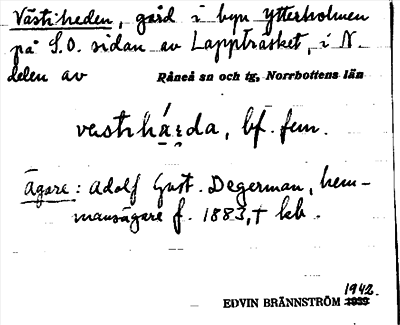 Västiheden, gård i byn Ytterholmen
på S.O. sidan av Lappträsket, i N.
delen av Råneå sn och tg, Norrbottens län
bf. fem.
Ägare: Adolf Gust. Degerman, hem-
mansägare f. 1883, † kb.
1942.
EDVIN BRÄNNSTRÖM 1939